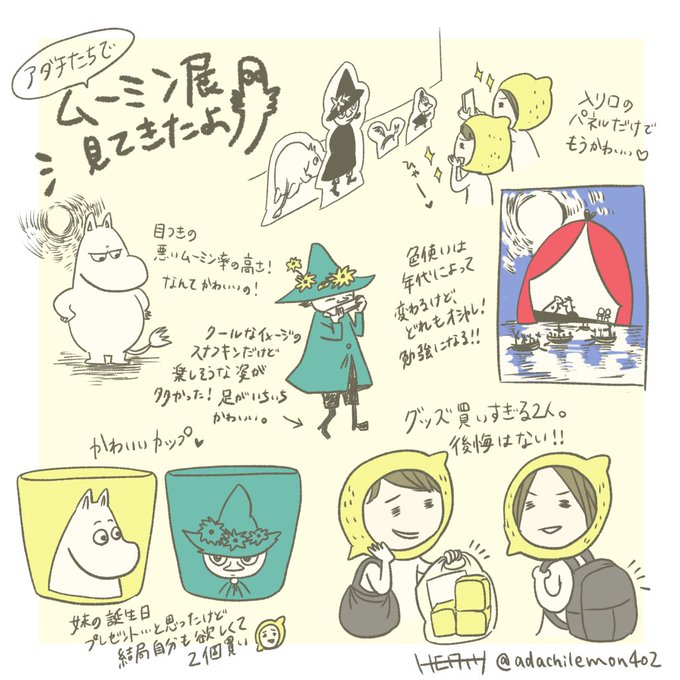 アダチたちで
ムーミン展
見てきたよ
入り口の
パネルだけで
もうかわいい♡
ひゃ〜
目つきの
悪いムーミン率の高さ!
なんてかわいいの!
色使いは
年代によって
変わるけど、
どれもオシャレ!
勉強になる!!
クールなイメージの
スナフキンだけど
楽しそうな姿が
多かった!足がいちいち
かわいい。
かわいいカップ♥
グッズ買いすぎる2人。
後悔はない!!
妹の誕生日
プレゼント…と思ったけど
結局自分も欲しくて
2個買い
@adachilemon402